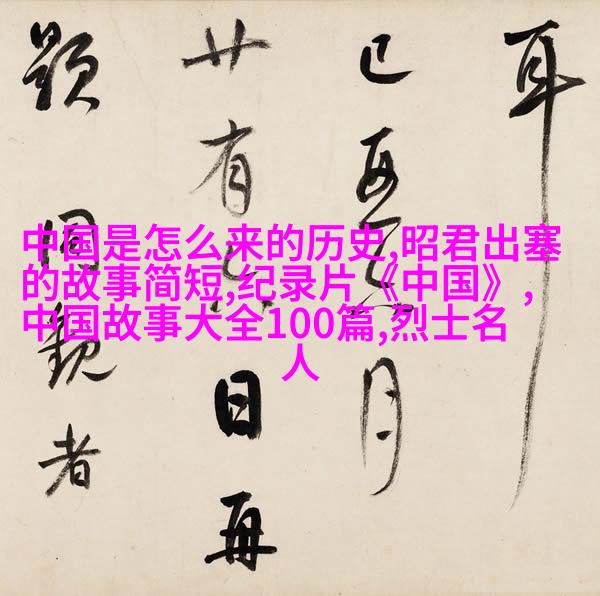 耳
月
廿有日再
題同觀者
中国是怎么来的历史,昭君出塞
的故事简短,纪录片《中国》,
中国故事大全100篇,烈士名
人